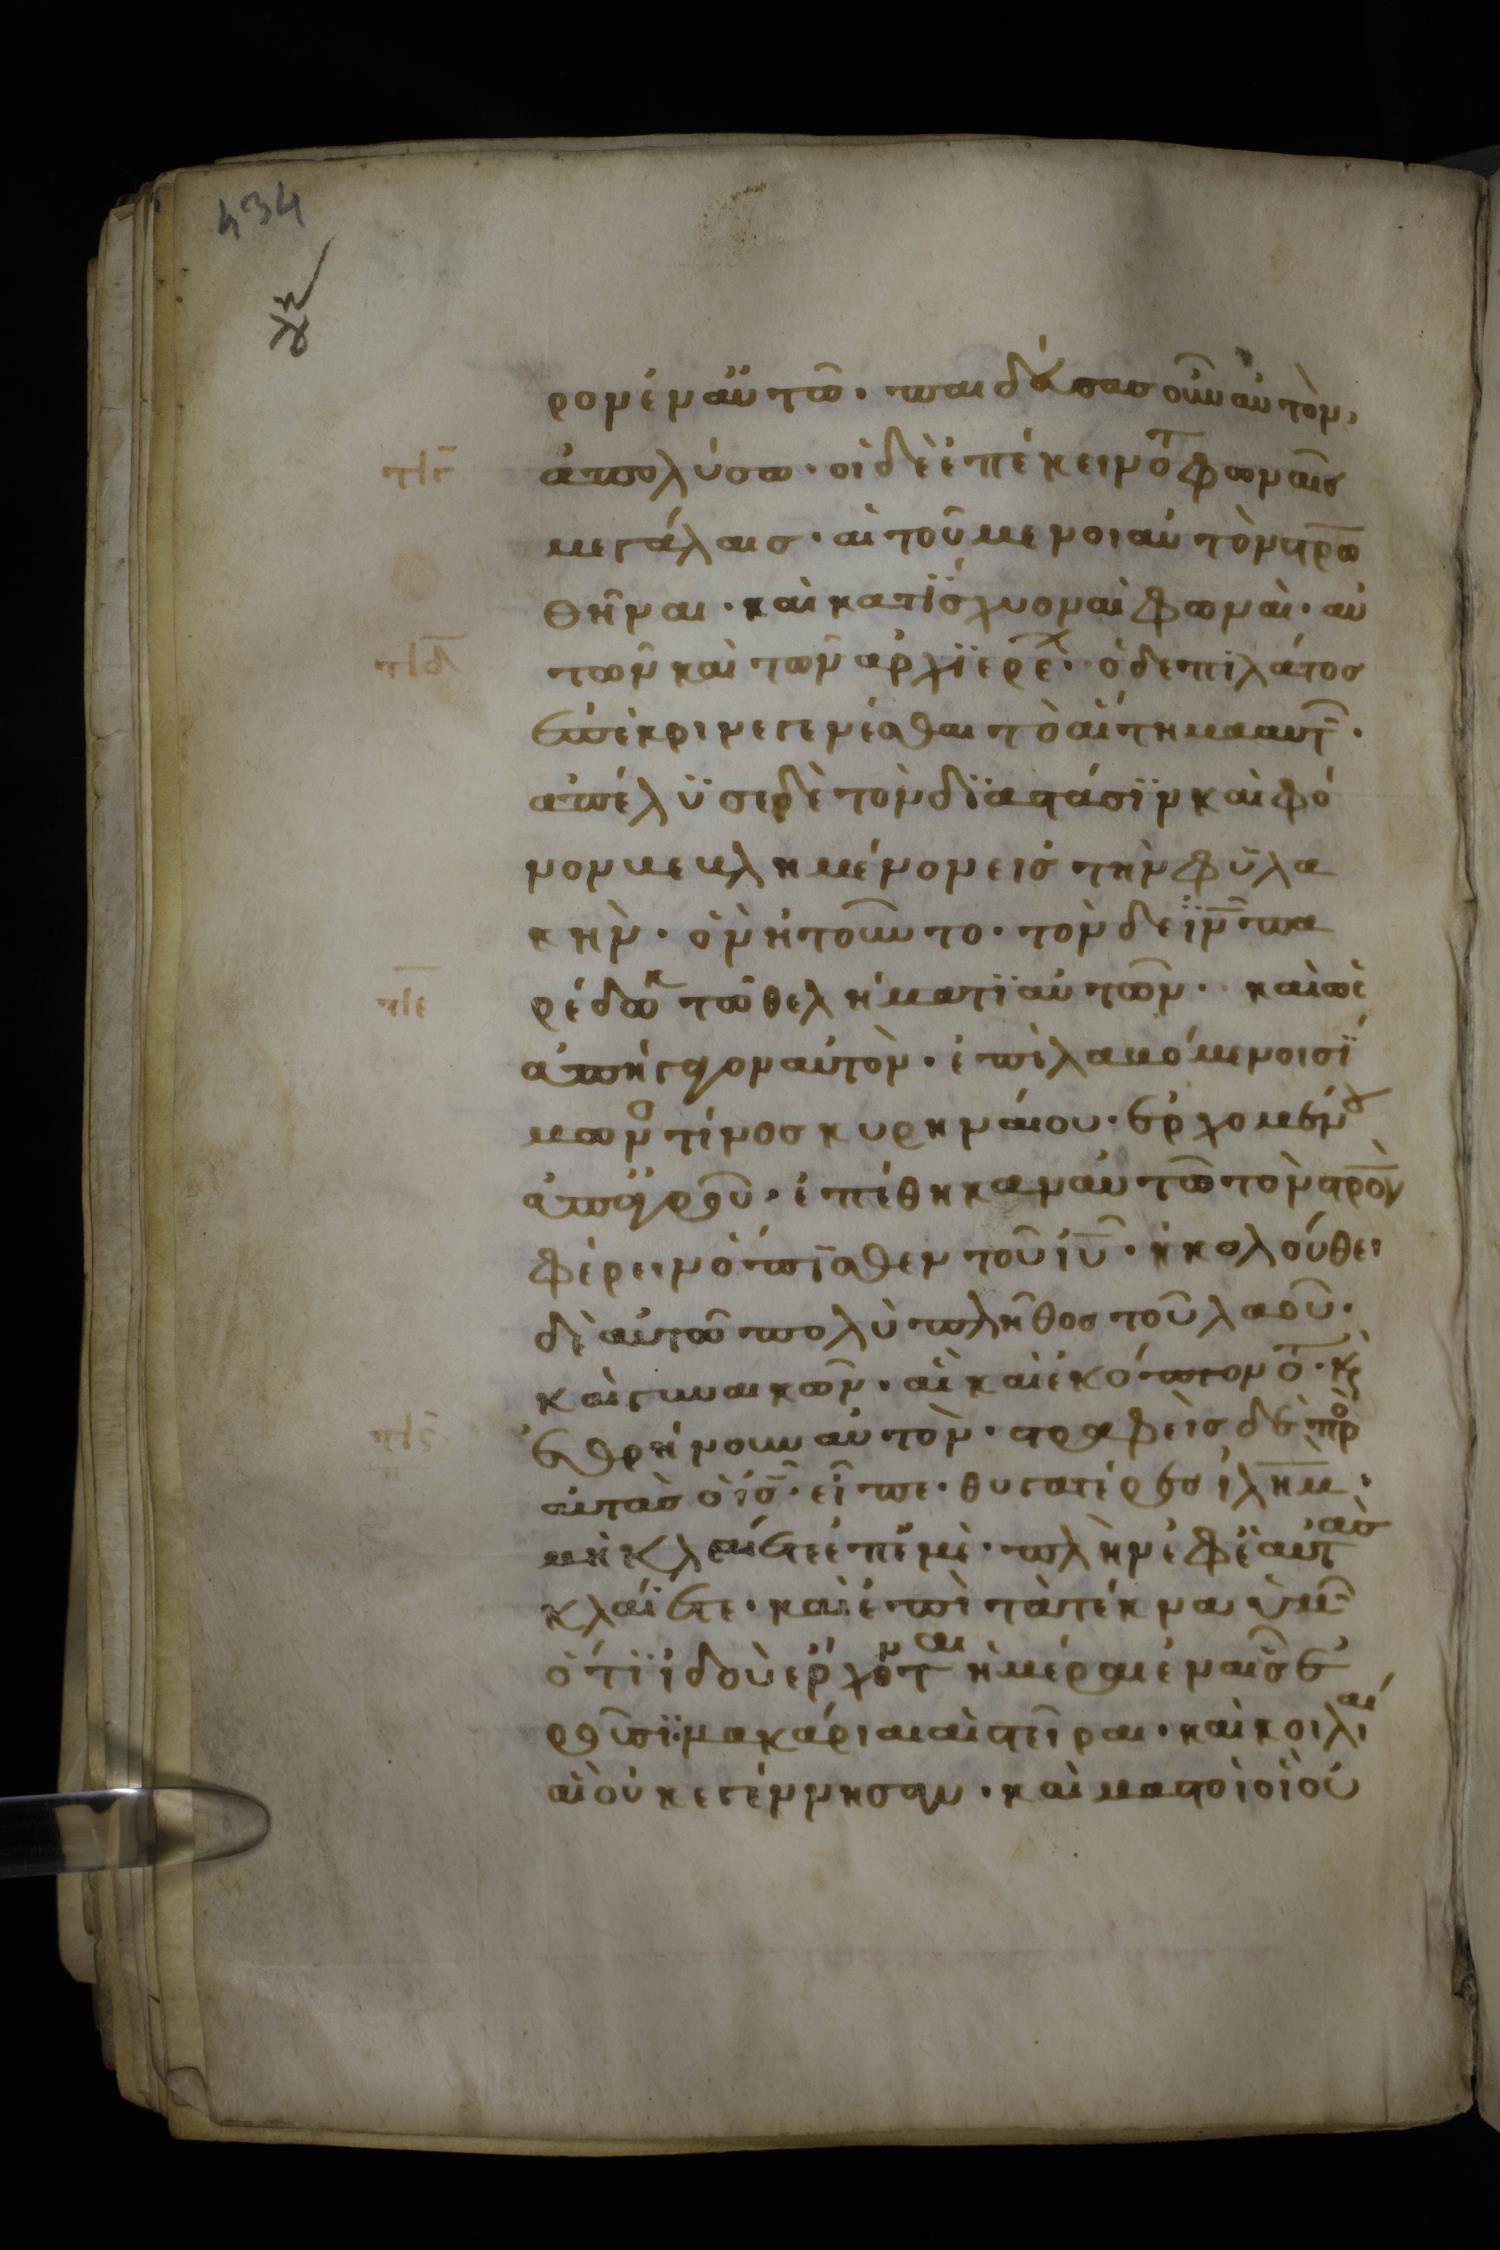 434
ρον ἐν αὐτῶ. παιδεύσας οὖν αὐτὸν,
ἀπολύσω. οἱ δὲ ἐπέκειντο φωναῖς
μεγάλαις. αἰτούμενοι αὐτὸν στρω
θῆναι. καὶ κατΐσχυον αἱ φωναὶ. αὐ
τῶν καὶ τῶν ἀρχϊερέ. ὁ δε πιλάτος
ἐπέκρινε γενέσθαι τὸ αἴτημα αυτ.
ἀπέλϋσε δὲ τὸν δϊαστάσϊν καὶ φό
νον κεκλημένον εἰς τὴν φῦλα
κὴν. ὃν ἠτοῦντο. τὸν δε ϊν πα
ρέδωκ τῶ θελήματϊ αὐτῶν. καὶ ὡς
ἀπήγαγον αὐτὸν. ἐπϊλαβόμενοι σΐ
μωνο τίνος κυρηναίου. ἐρχομέν
ἀπ ἀγροῦ. ἐπέθηκαν αὐτῶ τὸν στρὸν
φέρειν ὄπϊσθεν τοῦ ιυ. ἠκολούθει
δὲ αὐτῶ πολὺ πλῆθος τοῦ λαοῦ.
καὶ γυναικῶν. αἳ καὶ ἐκόπτοντο. κ
ἐθρήνουν αὐτὸν. στραφεὶς δὲ πρ
αὐτὰς ὁ ις. εἶπε. θυγατέρες ιλημ.
μὴ κλαίετε ἐπ ἐμὲ. πλὴν ἐφ ἑαυτὰς
κλαίετε. καὶ ἐπὶ τὰ τέκνα ὑμ
ὅτϊ ἰδοὺ ἔρχονται ἡμέραι ἐν αἷς ἐ
ροῦσϊ. μακάριαι αἱ στεῖραι. καὶ κοιλίαι
αἳ οὐκ ἐγέννησαν. καὶ μαστοὶ οἳ οὐ
τιη
τιθ